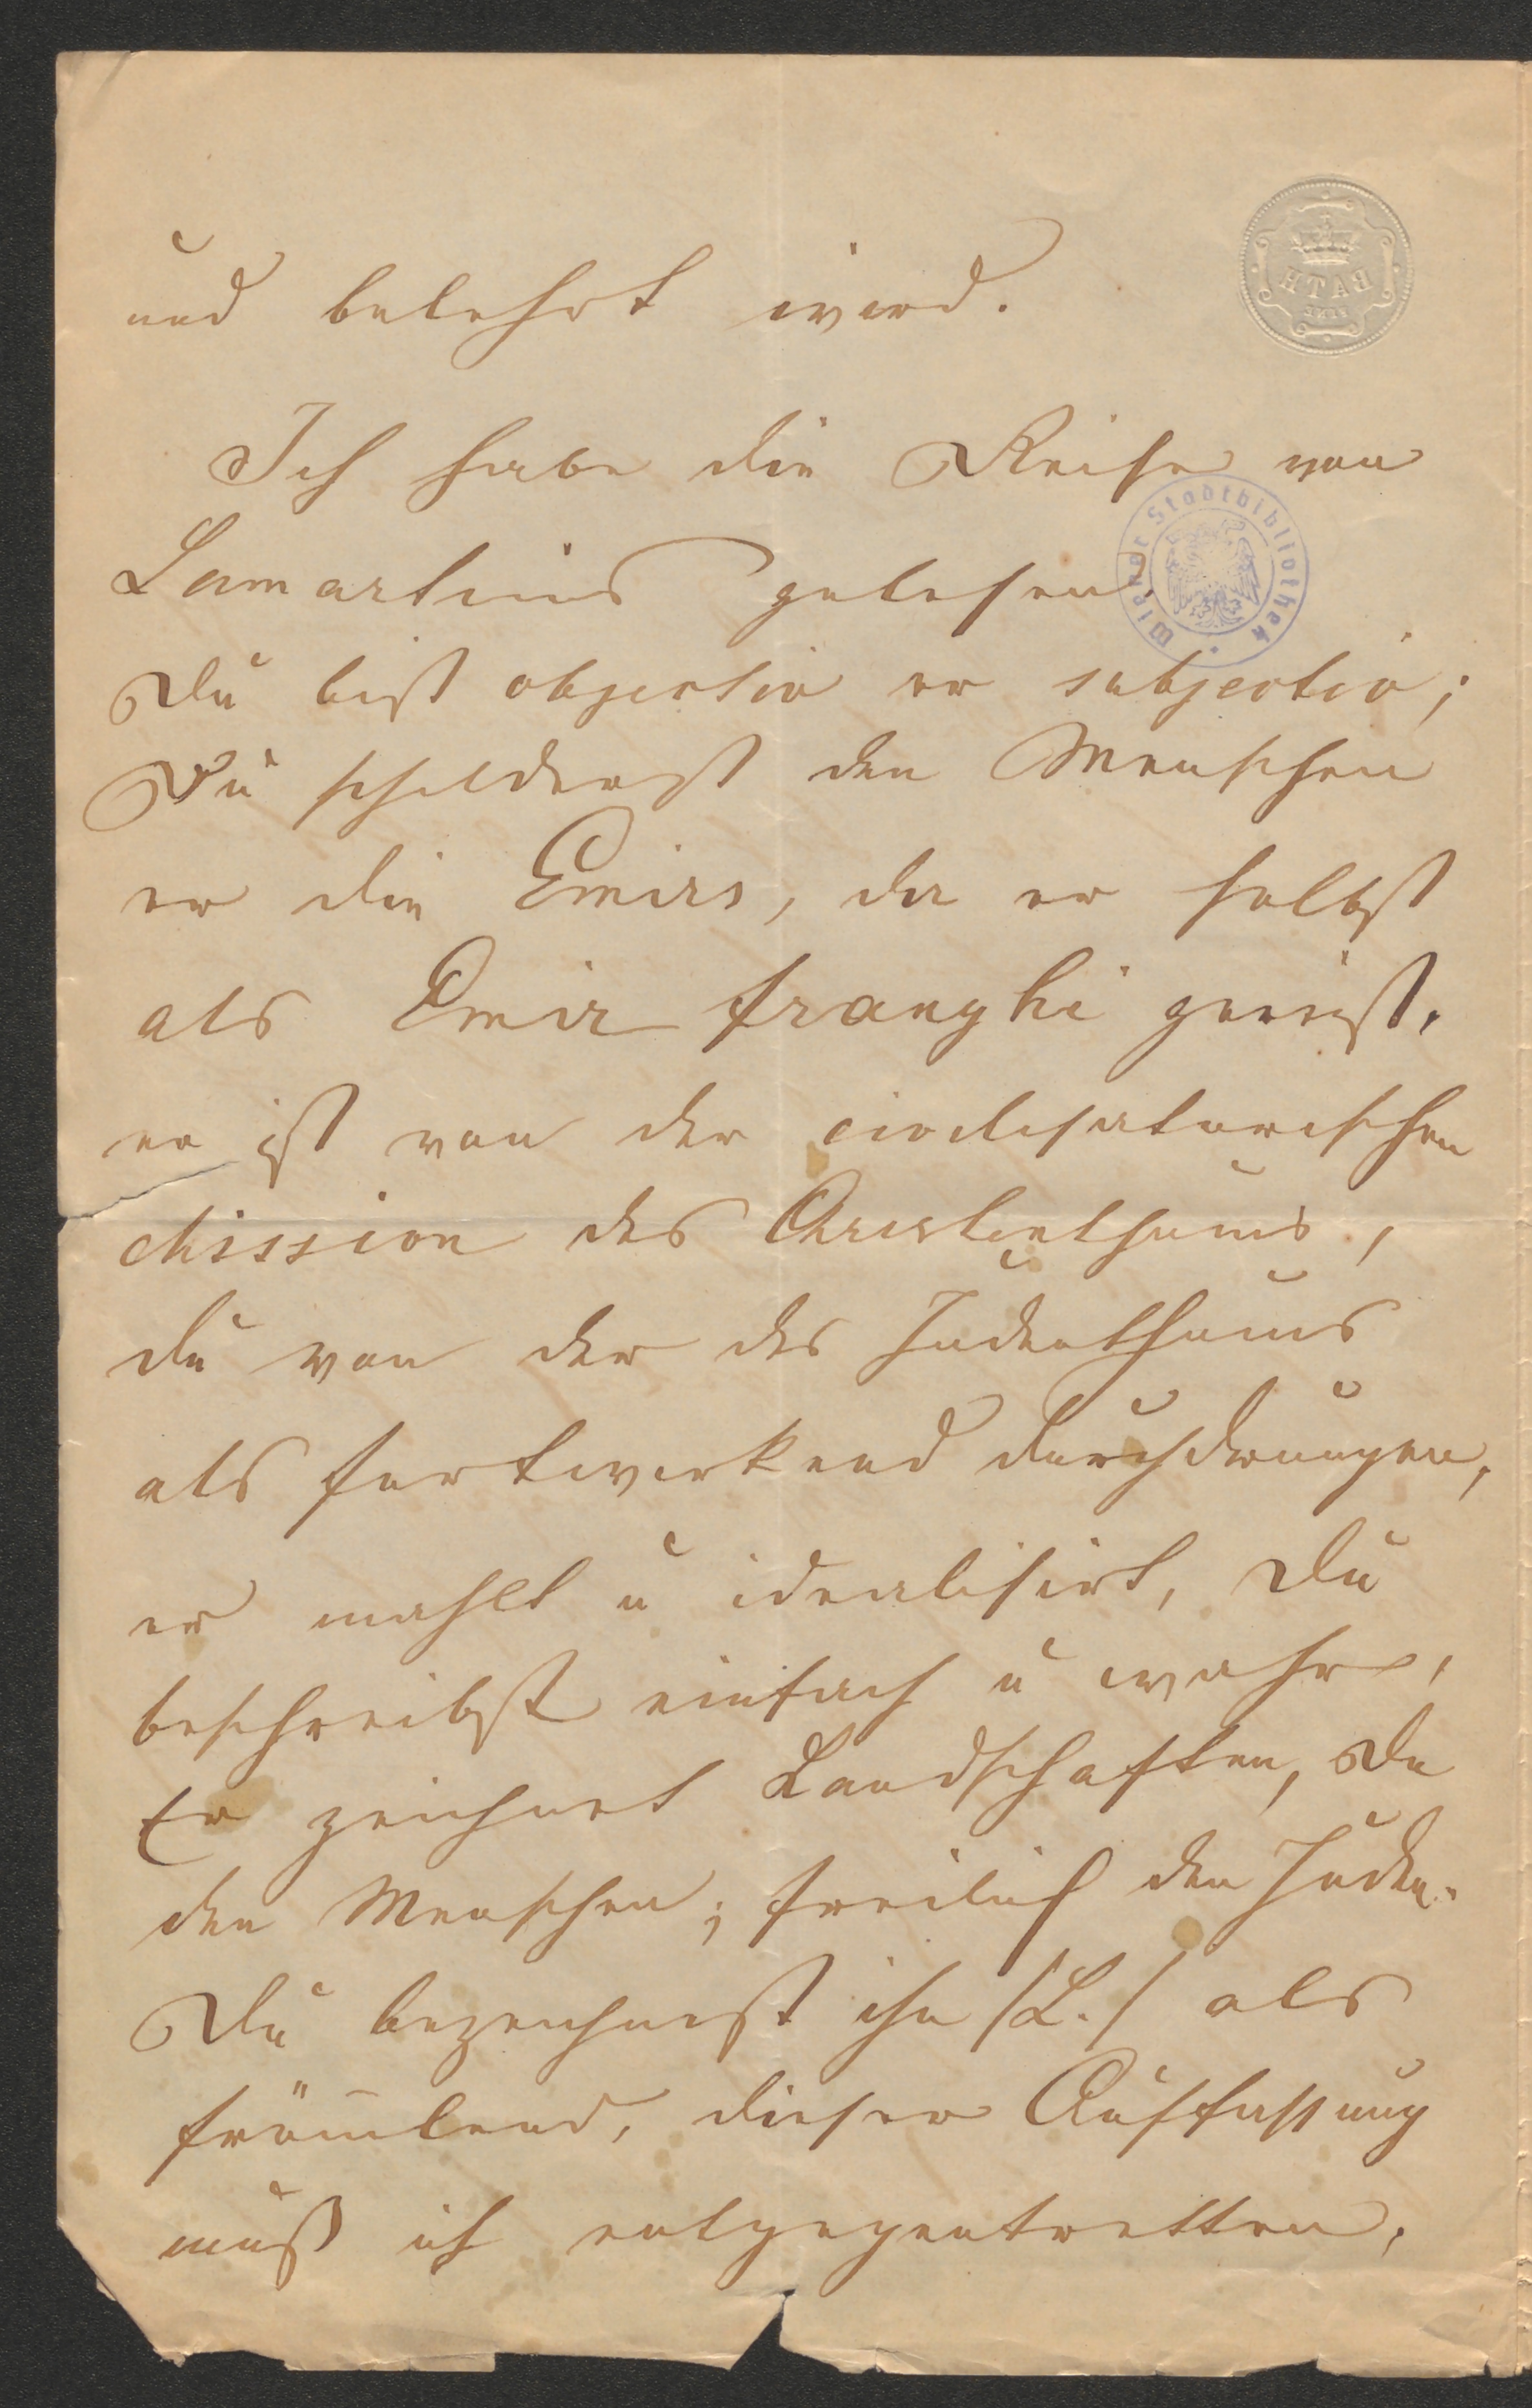 und belehrt wird.
Ich habe die Reise von
Lamartins gelesen.
Wiener Stadtbibliothek
Du bist objectiv er subjectiv;
Du schilderst den Menschen
er die Emirs, da er selbst
als Emir franghi gereist.
er ist von der civilisatorischen
Mission des Christenthums,
du von der des Judenthums
als fortwirkend durchdrungen,
er mahlt u idealisirt, Du
beschreibst einfach u wahr,
Er zeichnet Landschaften, Du
den Menschen; freilich den Juden.
Du bezeichnest ihn /L./ als
frömlend, dieser Auffassung
muß ich entgegentretten,
BATH